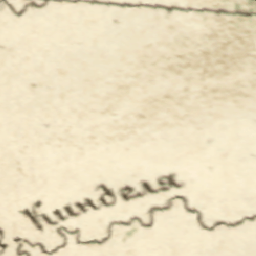 Кинделя